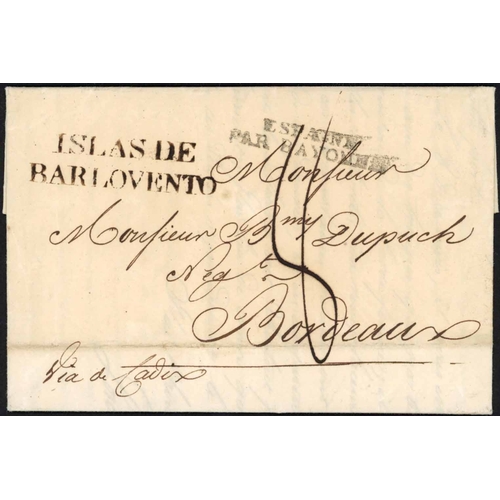 ISLAS DE
BARLOVENTO
ESPAGNE
PAR BAYONNE
Monsieur
Monsieur Bmy Dupuch
Negt.
Bordeaux
Via de Cadix